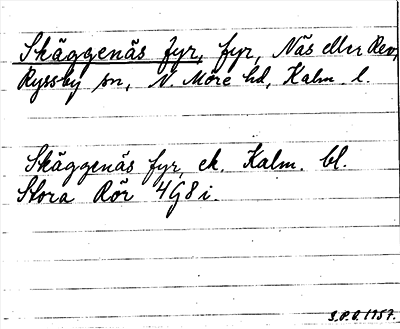 Skäggenäs fyr, fyr, Näs eller Rev,
Ryssby sn, N. Möre hd, Kalm. l.
Skäggenäs fyr, ek. Kalm. bl.
Stora Rör 4G8i.
S.P.O. 1957.